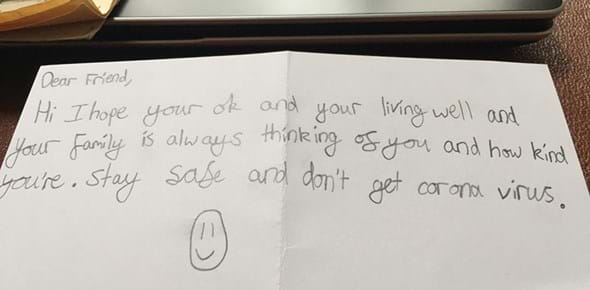 Dear Friend,
Hi I hope your ok and your living well and
your family is always thinking of you and how kind
you're. Stay safe and don't get corona virus.